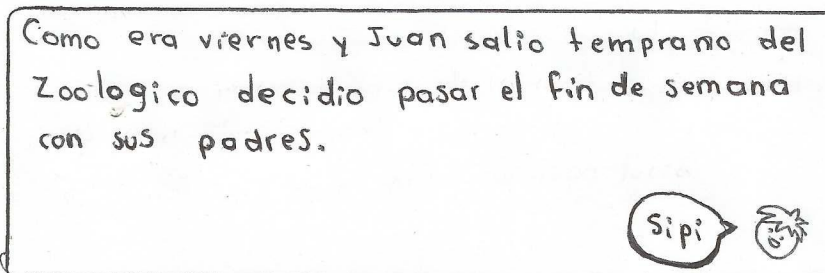 Como era viernes y Juan salio temprano del
Zoologico decidio pasar el fin de semana
con sus padres.
Sipi